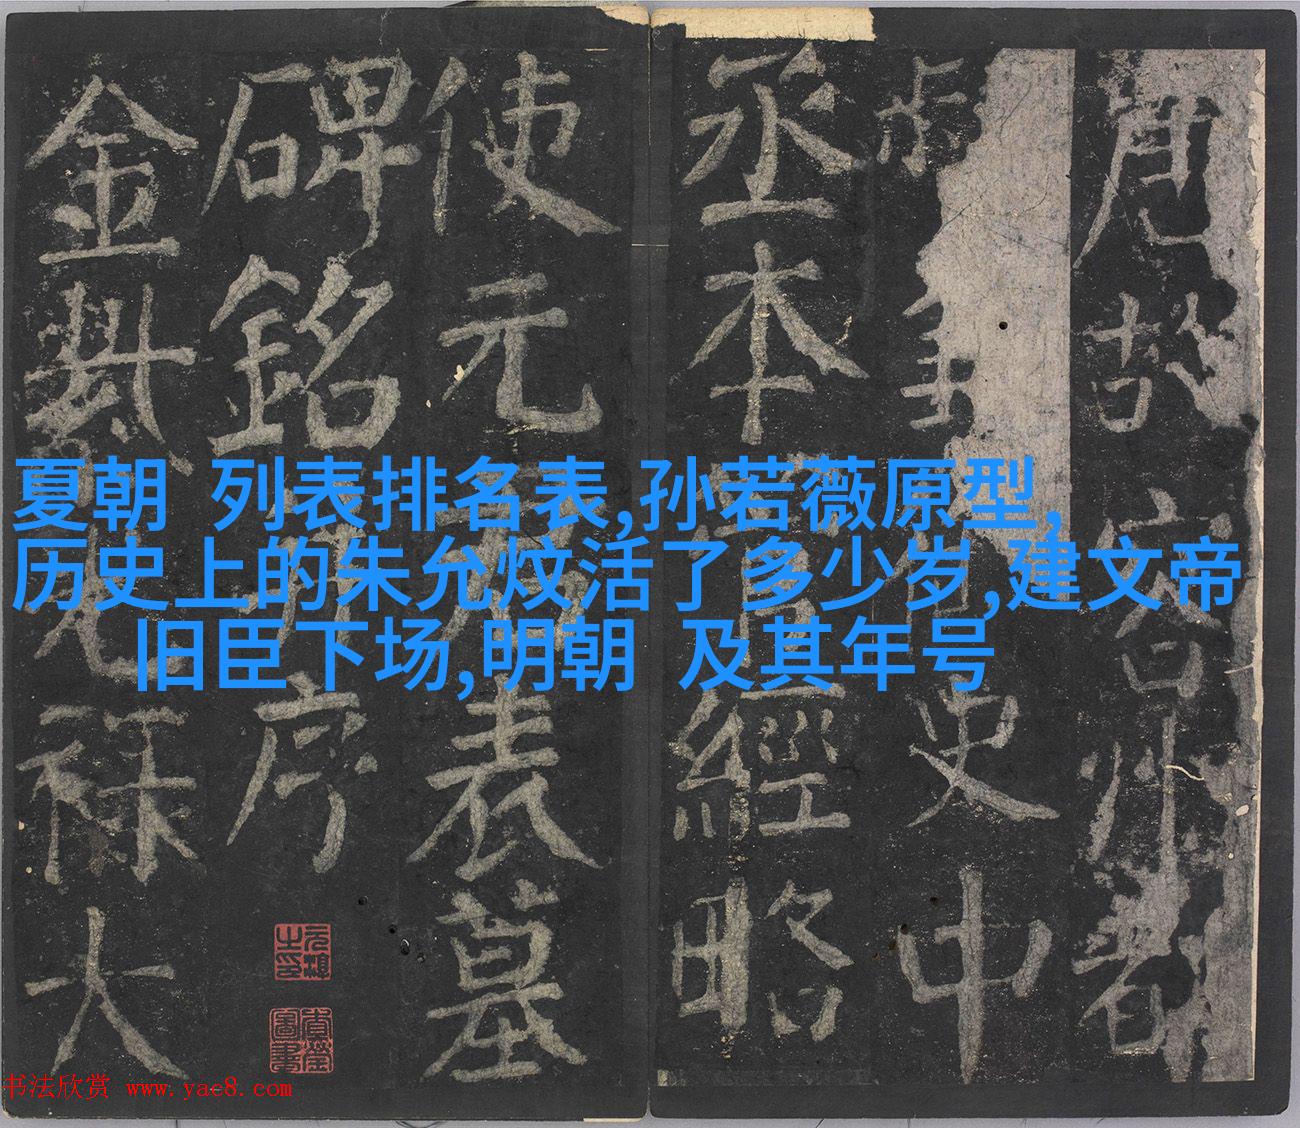 唐故容州都
史中
丞本管經略
使元君表墓
碑銘并序
金紫光祿大
夏朝 列表排名表,孙若薇原型,
历史上的朱允炆活了多少岁,建文帝
旧臣下场,明朝 及其年号
书法欣赏 www.yac8.com